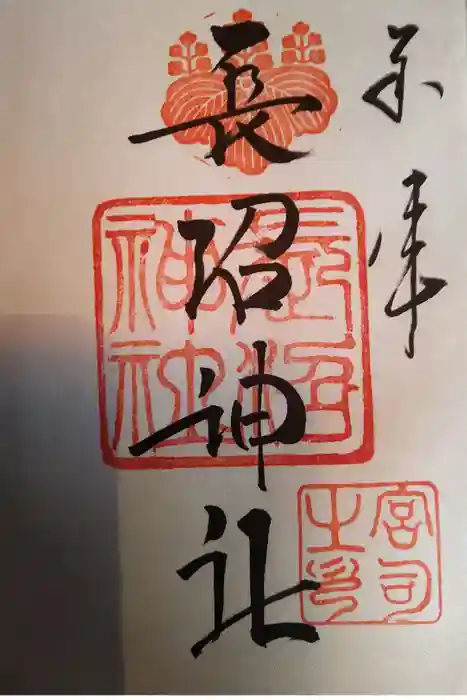 奉拝
長沼神社
長沼神社
宮司之印